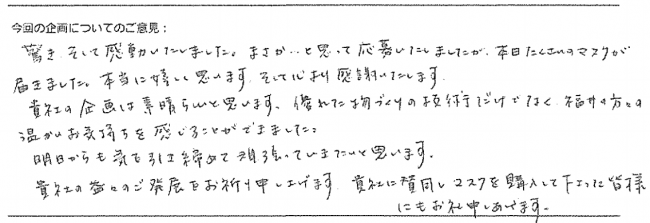 今回の企画についてのご意見：
驚き、そして感動いたしました。まさか…と思って応募いたしましたが、本日たくさんのマスクが
届きました。本当に嬉しく思います。そして心より感謝いたします。
貴社の企画は素晴らしいと思います。優れた物づくりの技術だけでなく、福井の方々の
温かいお気持ちを感じることができました。
明日からも気を引き締めて頑張っていきたいと思います。
貴社の益々のご発展をお祈り申し上げます。貴社に賛同しマスクを購入して下さった皆様
にもお礼申しあげます。